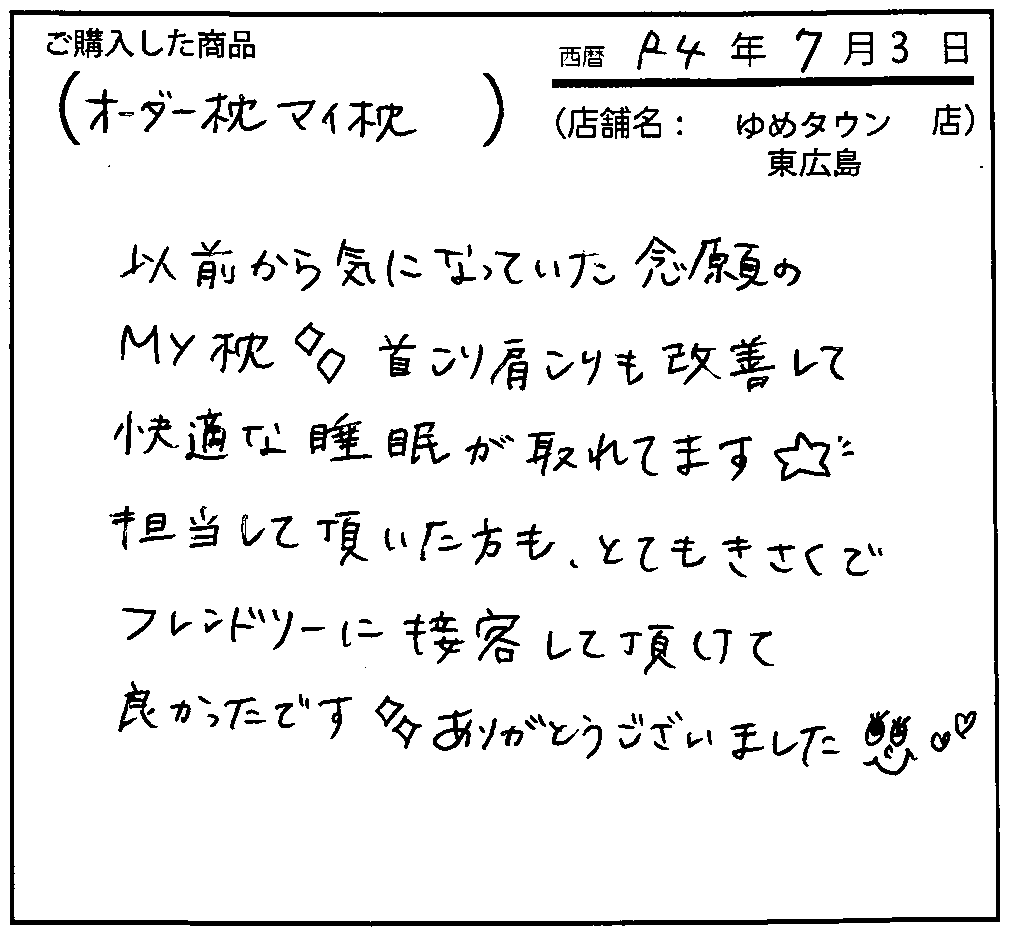 ご購入した商品
西暦 R4年7月3日
(オーダー枕 マイ枕)
(店舗名： ゆめタウン 店)
東広島
以前から気になっていた念願の
MY枕 首こり肩こりも改善して
快適な睡眠が取れてます☆
担当して頂いた方も、とてもきさくで
フレンドリーに接客して頂けて
良かったです ありがとうございました